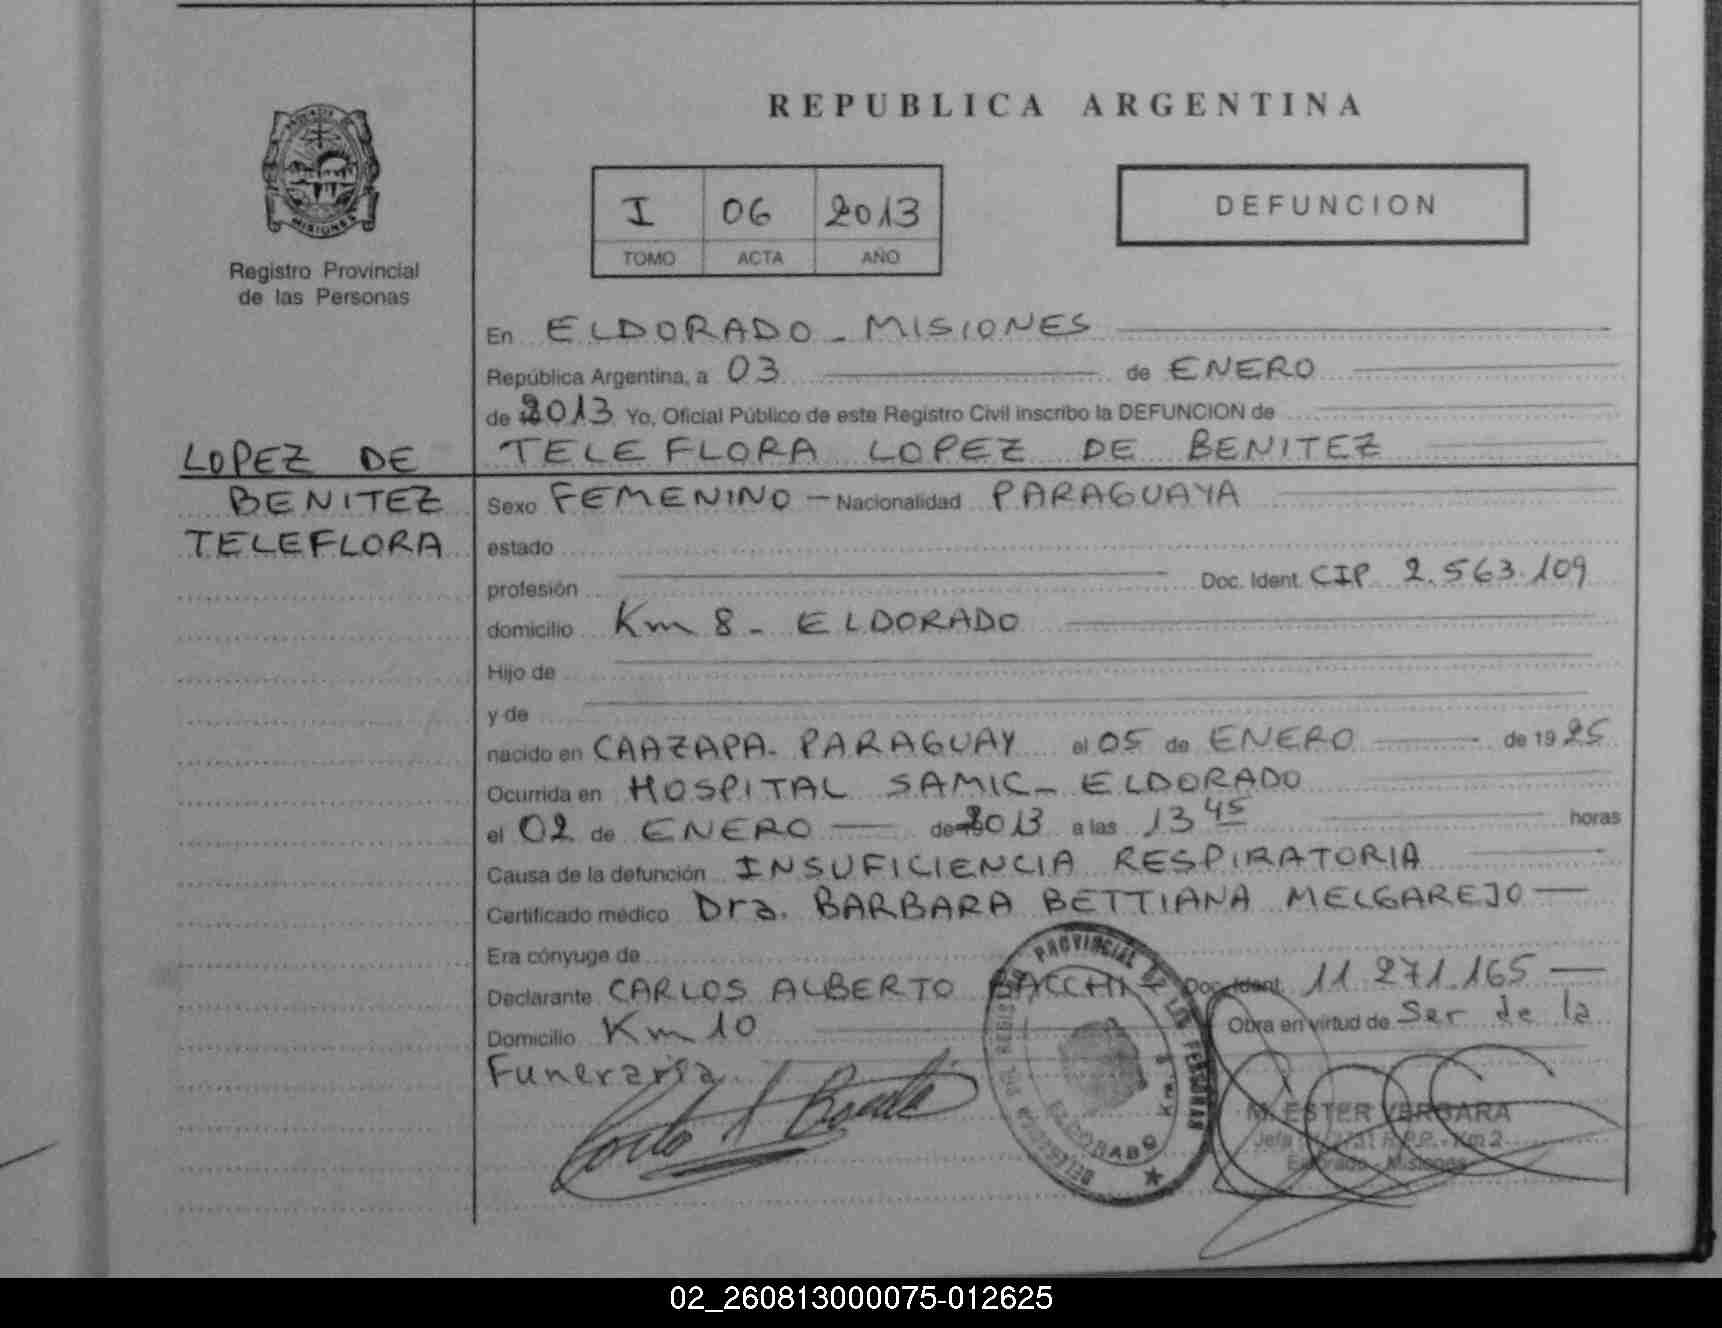 REPUBLICA ARGENTINA
MISIONES
Registro Provincial
de las Personas
I 06 2013
TOMO ACTA AÑO
DEFUNCION
En ELDORADO - MISIONES
República Argentina, a 03 de ENERO
de 2013 Yo, Oficial Público de este Registro Civil inscribo la DEFUNCION de
TELEFLORA LOPEZ DE BENITEZ
LOPEZ DE
BENITEZ
TELEFLORA
Sexo FEMENINO - Nacionalidad PARAGUAYA
estado
profesión Doc. Ident. CIP 2.563.109
domicilio Km 8 - ELDORADO
Hijo de
y de
nacido en CAAZAPA - PARAGUAY el 05 de ENERO de 1925
Ocurrida en HOSPITAL SAMIC - ELDORADO
el 02 de ENERO de 2013 a las 13 45 horas
Causa de la defunción INSUFICIENCIA RESPIRATORIA
Certificado médico Dra. BARBARA BETTIANA MELGAREJO
Era cónyuge de
Declarante CARLOS ALBERTO BACCHI Doc. Ident. 11.271.165
Domicilio Km 10 Obra en virtud de Ser de la
Funeraria
PROVINCIAL DE LAS PERSONAS
ELDORADO Km
M. ESTER VERGARA
Jefa R.P.P. - Km 2
Eldorado - Misiones
02_260813000075-012625